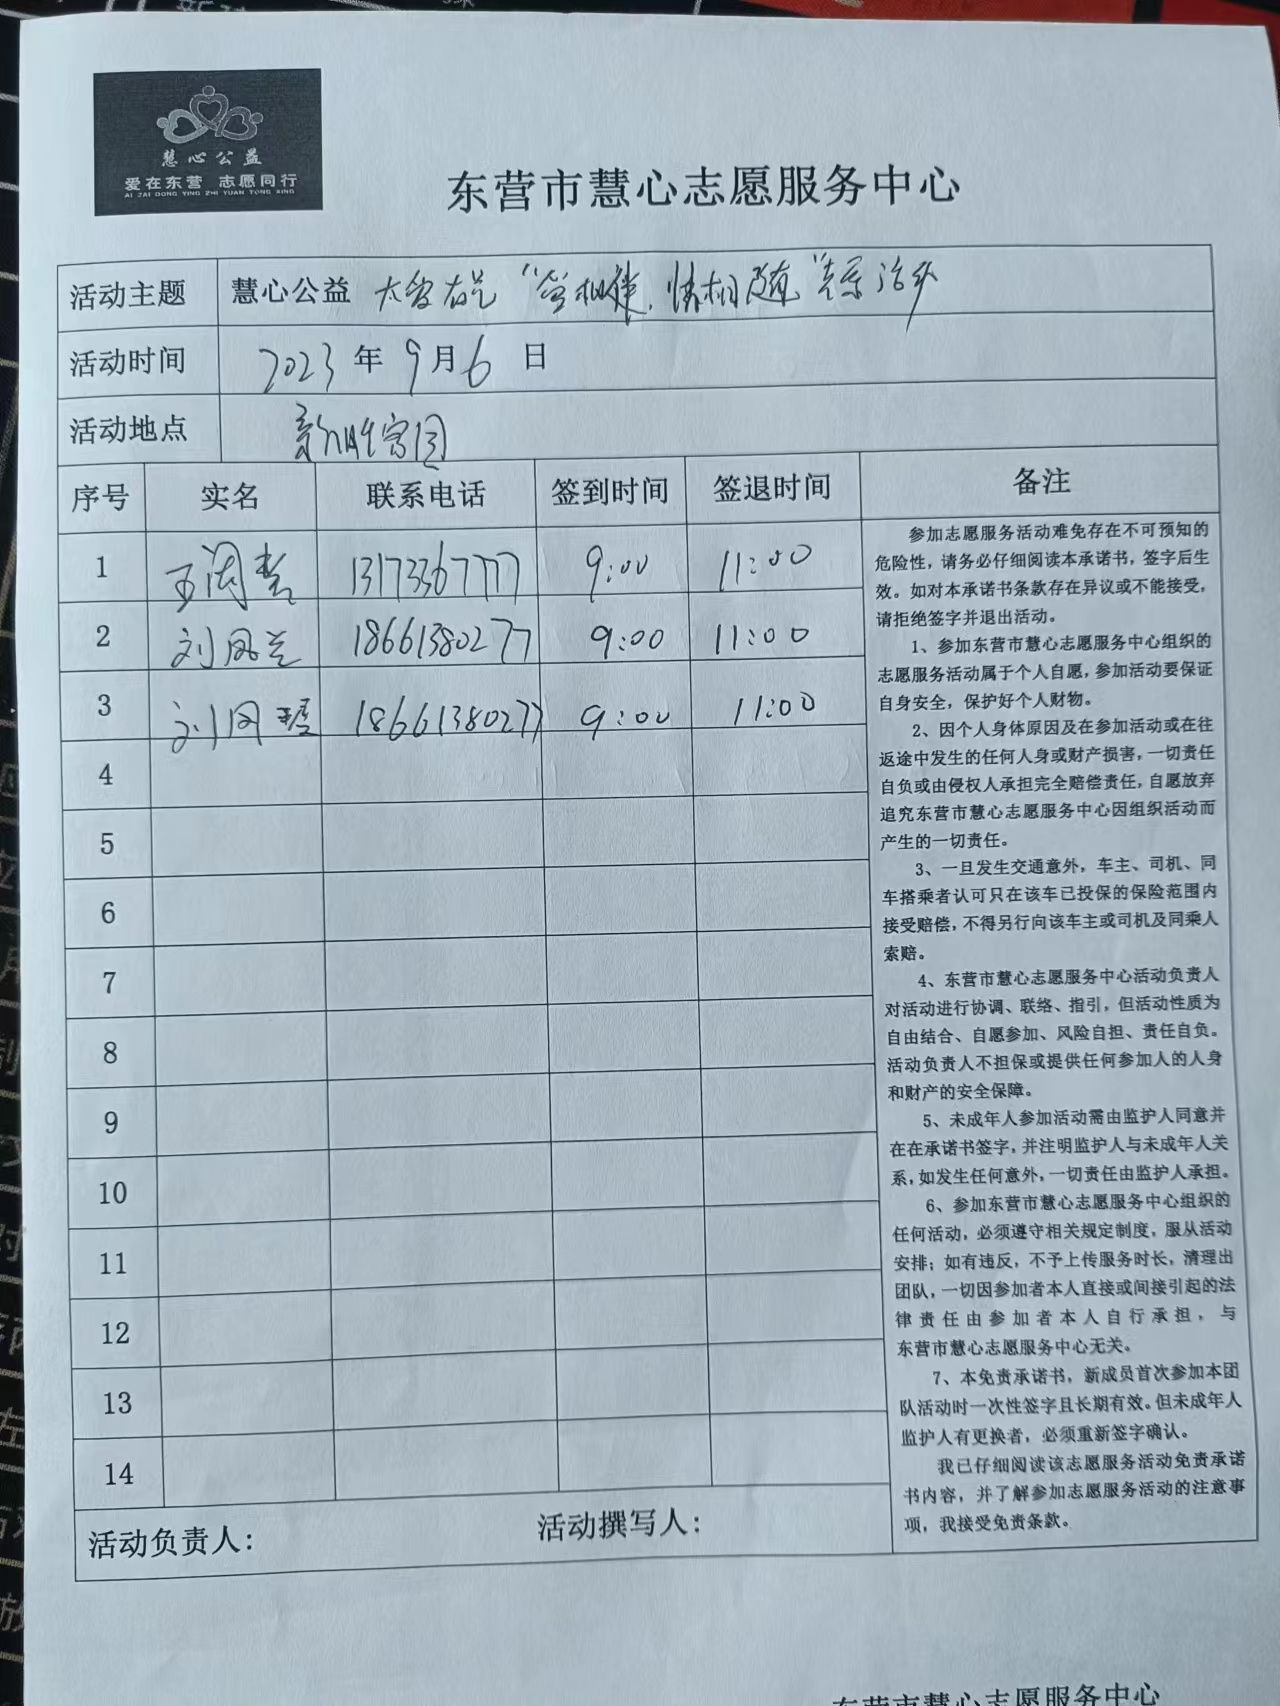 慧心公益
爱在东营 志愿同行
AI ZAI DONG YING ZHI YUAN TONG XING
东营市慧心志愿服务中心
活动主题 慧心公益 "爱相伴,情相随" 活动
活动时间 2023年9月6日
活动地点 新胜家园
序号 实名 联系电话 签到时间 签退时间 备注
1 13173367777 9:00 11:00
2 刘凤兰 18661380277 9:00 11:00
3 刘凤 18661380277 9:00 11:00
4
5
6
7
8
9
10
11
12
13
14
参加志愿服务活动难免存在不可预知的
危险性,请务必仔细阅读本承诺书,签字后生
效。如对本承诺书条款存在异议或不能接受,
请拒绝签字并退出活动。
1、参加东营市慧心志愿服务中心组织的
志愿服务活动属于个人自愿,参加活动要保证
自身安全,保护好个人财物。
2、因个人身体原因及在参加活动或在往
返途中发生的任何人身或财产损害,一切责任
自负或由侵权人承担完全赔偿责任,自愿放弃
追究东营市慧心志愿服务中心因组织活动而
产生的一切责任。
3、一旦发生交通意外,车主、司机、同
车搭乘者认可只在该车已投保的保险范围内
接受赔偿,不得另行向该车主或司机及同乘人
索赔。
4、东营市慧心志愿服务中心活动负责人
对活动进行协调、联络、指引,但活动性质为
自由结合、自愿参加、风险自担、责任自负。
活动负责人不担保或提供任何参加人的人身
和财产的安全保障。
5、未成年人参加活动需由监护人同意并
在在承诺书签字,并注明监护人与未成年人关
系,如发生任何意外,一切责任由监护人承担。
6、参加东营市慧心志愿服务中心组织的
任何活动,必须遵守相关规定制度,服从活动
安排;如有违反,不予上传服务时长,清理出
团队,一切因参加者本人直接或间接引起的法
律责任由参加者本人自行承担,与
东营市慧心志愿服务中心无关。
7、本免责承诺书,新成员首次参加本团
队活动时一次性签字且长期有效。但未成年人
监护人有更换者,必须重新签字确认。
我已仔细阅读该志愿服务活动免责承诺
书内容,并了解参加志愿服务活动的注意事
项,我接受免责条款。
活动负责人: 活动撰写人:
东营市慧心志愿服务中心